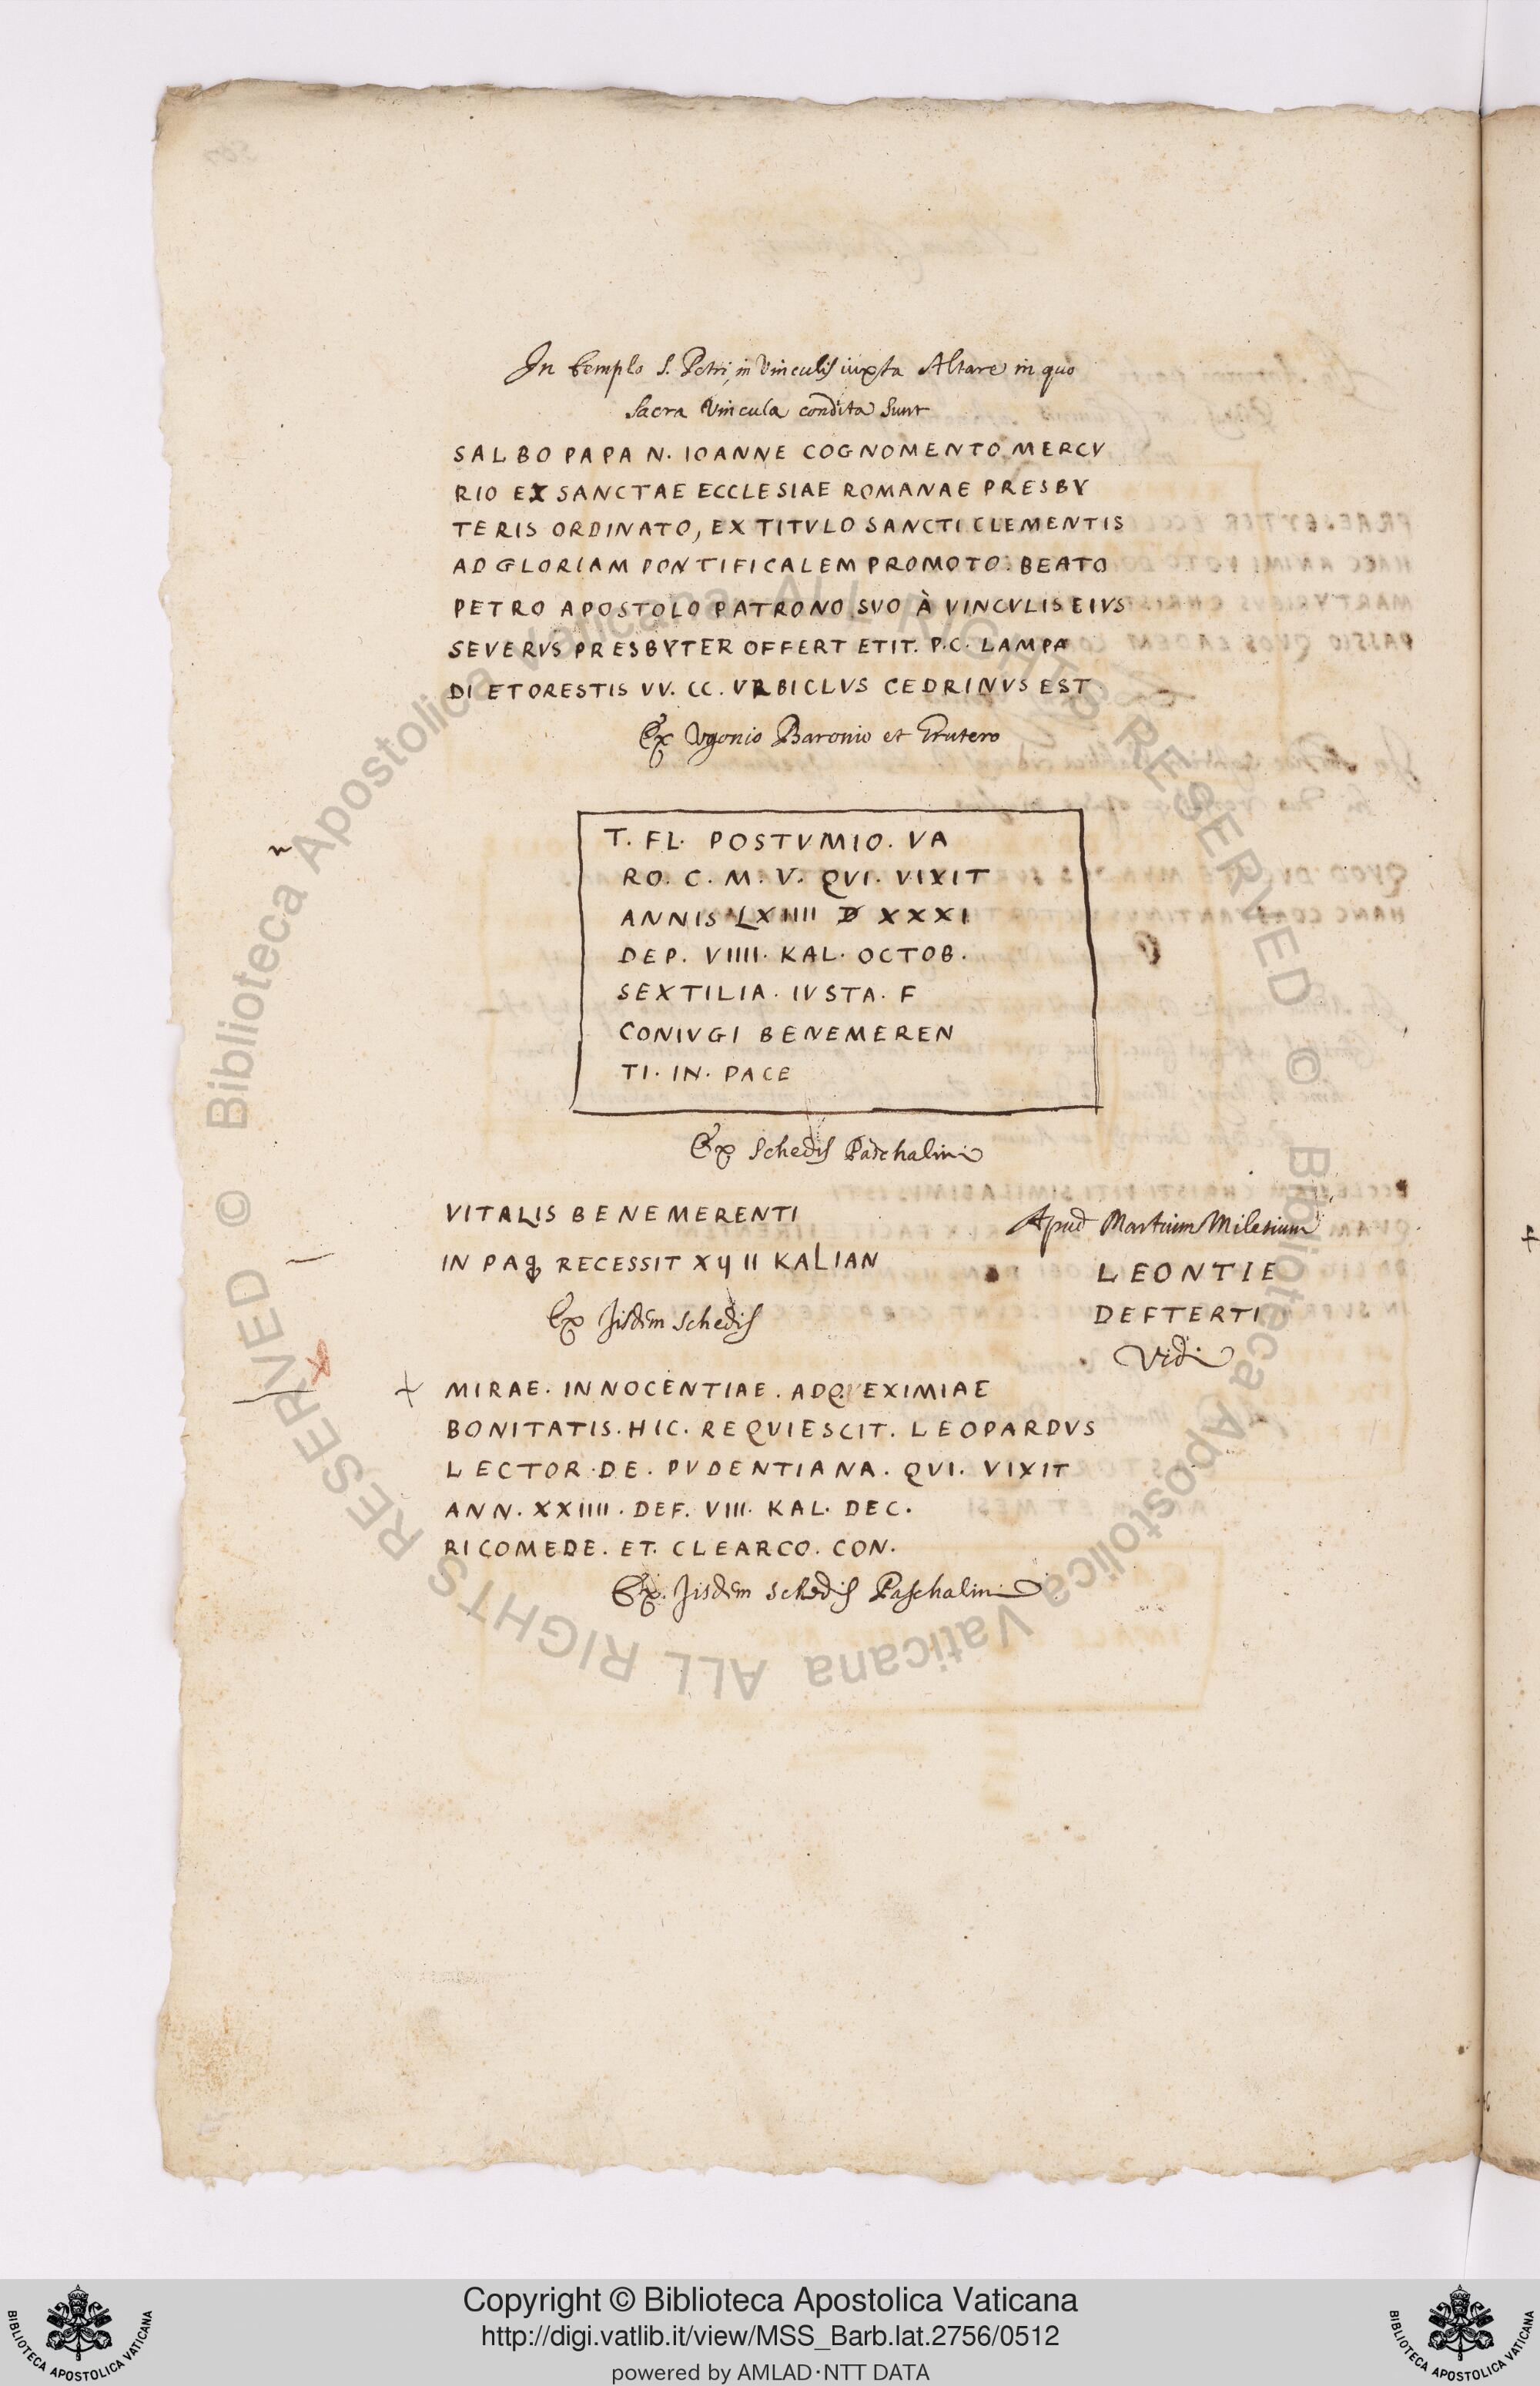 In templo S. Petri, in Vinculis iuxta Altare in quo
Sacra Vincula condita sunt
SALBO PAPA N. IOANNE COGNOMENTO MERCV
RIO EX SANCTAE ECCLESIAE ROMANAE PRESBY
TERIS ORDINATO, EX TITVLO SANCTI CLEMENTIS
AD GLORIAM PONTIFICALEM PROMOTO. BEATO
PETRO APOSTOLO PATRONO SVO À VINCVLIS EIVS
SEVERVS PRESBYTER OFFERT ETIT. P.C. LAMPA
DI ET ORESTIS VV. CC. VRBICLVS CEDRINVS EST
Ex Ugonio Baronio et Grutero
T. FL. POSTVMIO. VA
RO. C. M. V. QVI. VIXIT
ANNIS LXIIII D XXXI
DEP. VIIII. KAL. OCTOB.
SEXTILIA. IVSTA. F
CONIVGI BENEMEREN
TI. IN. PACE
Ex Schedis Paschalini
VITALIS BENEMERENTI
IN PAQ RECESSIT XЧII KALIAN
Ex Jisdem schedis
Apud Martium Milesium
LEONTIE
DEFTERTI
Vidi
+ MIRAE. INNOCENTIAE. ADQ EXIMIAE
BONITATIS. HIC. REQVIESCIT. LEOPARDVS
LECTOR. DE. PVDENTIANA. QVI. VIXIT
ANN. XXIIII. DEF. VIII. KAL. DEC.
RICOMEDE. ET. CLEARCO. CON.
Ex. Jisdem schedis Paschalini
© Biblioteca Apostolica Vaticana ALL RIGHTS RESERVED © Biblioteca Apostolica Vaticana ALL RIGHTS RESERVED
Copyright © Biblioteca Apostolica Vaticana
http://digi.vatlib.it/view/MSS_Barb.lat.2756/0512
powered by AMLAD·NTT DATA
BIBLIOTECA APOSTOLICA VATICANA
BIBLIOTECA APOSTOLICA VATICANA